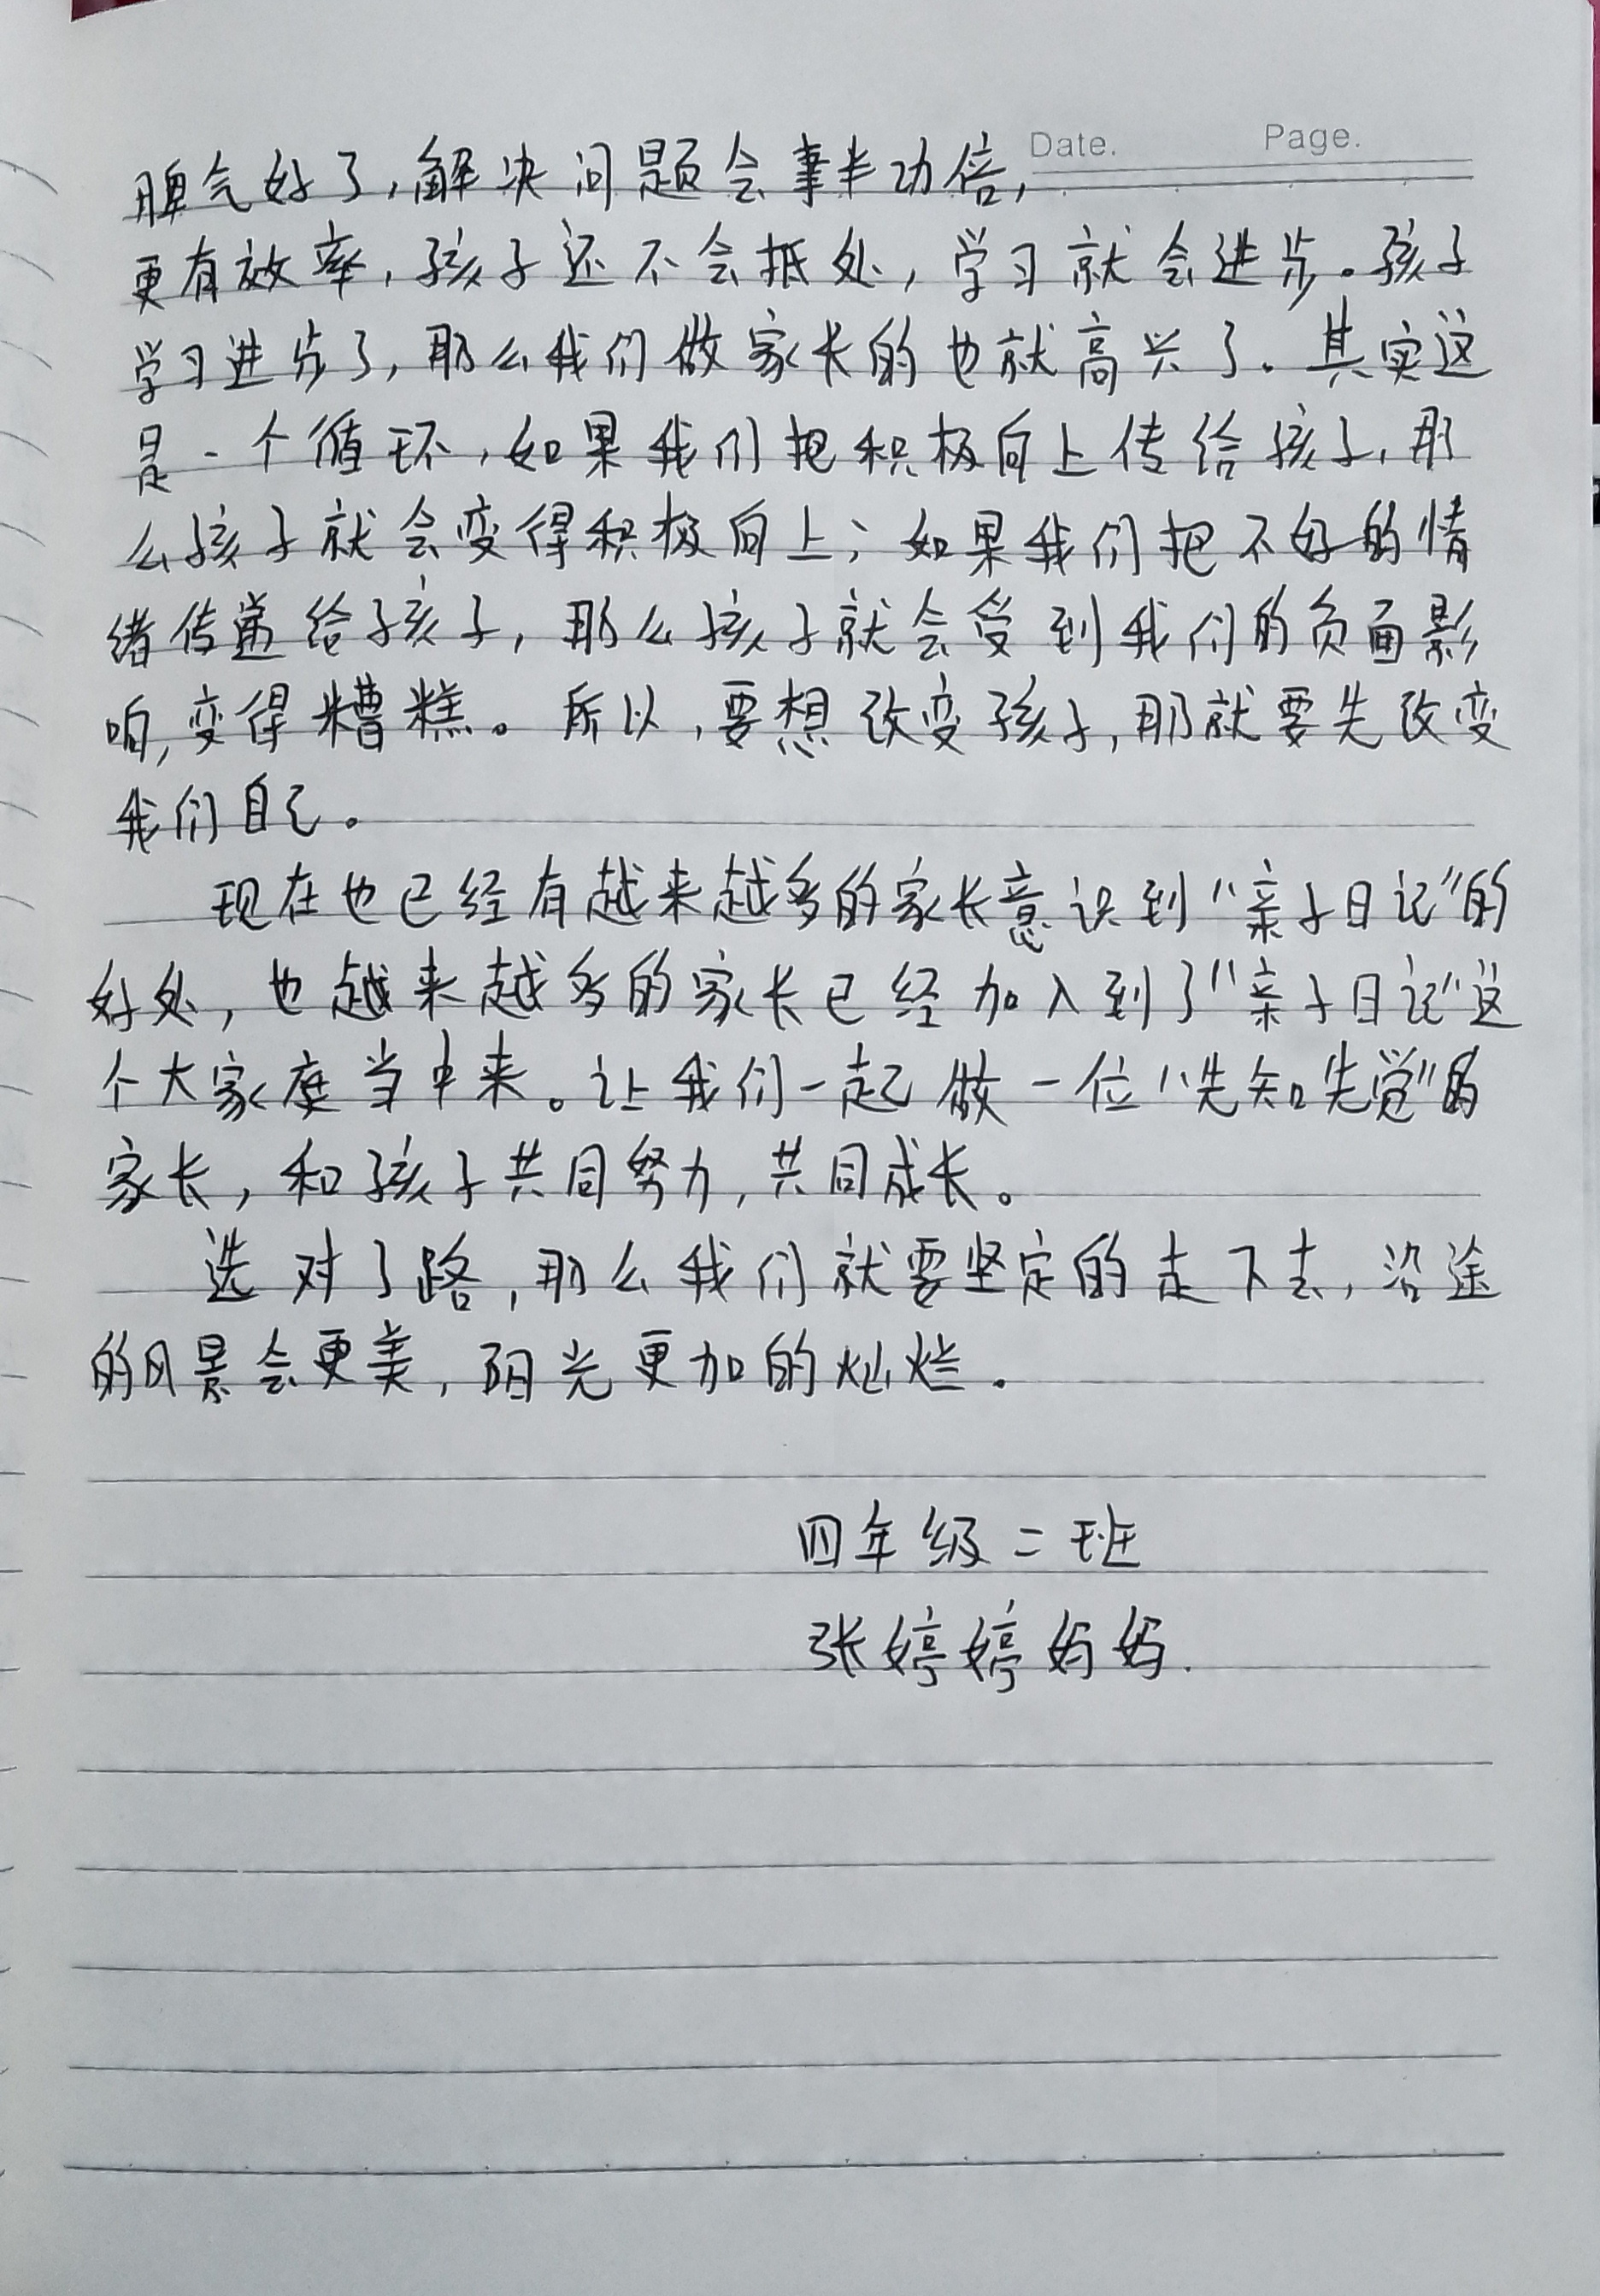 Date. Page.
脾气好了,解决问题会事半功倍,
更有效率,孩子还不会抵处,学习就会进步。孩子
学习进步了,那么我们做家长的也就高兴了。其实这
是一个循环,如果我们把积极向上传给孩子,那
么孩子就会变得积极向上;如果我们把不好的情
绪传递给孩子,那么孩子就会受到我们的负面影
响,变得糟糕。所以,要想改变孩子,那就要先改变
我们自己。
现在也已经有越来越多的家长意识到“亲子日记”的
好处,也越来越多的家长已经加入到了“亲子日记”这
个大家庭当中来。让我们一起做一位“先知先觉”的
家长,和孩子共同努力,共同成长。
选对了路,那么我们就要坚定的走下去,沿途
的风景会更美,阳光更加的灿烂。
四年级二班
张婷婷妈妈.